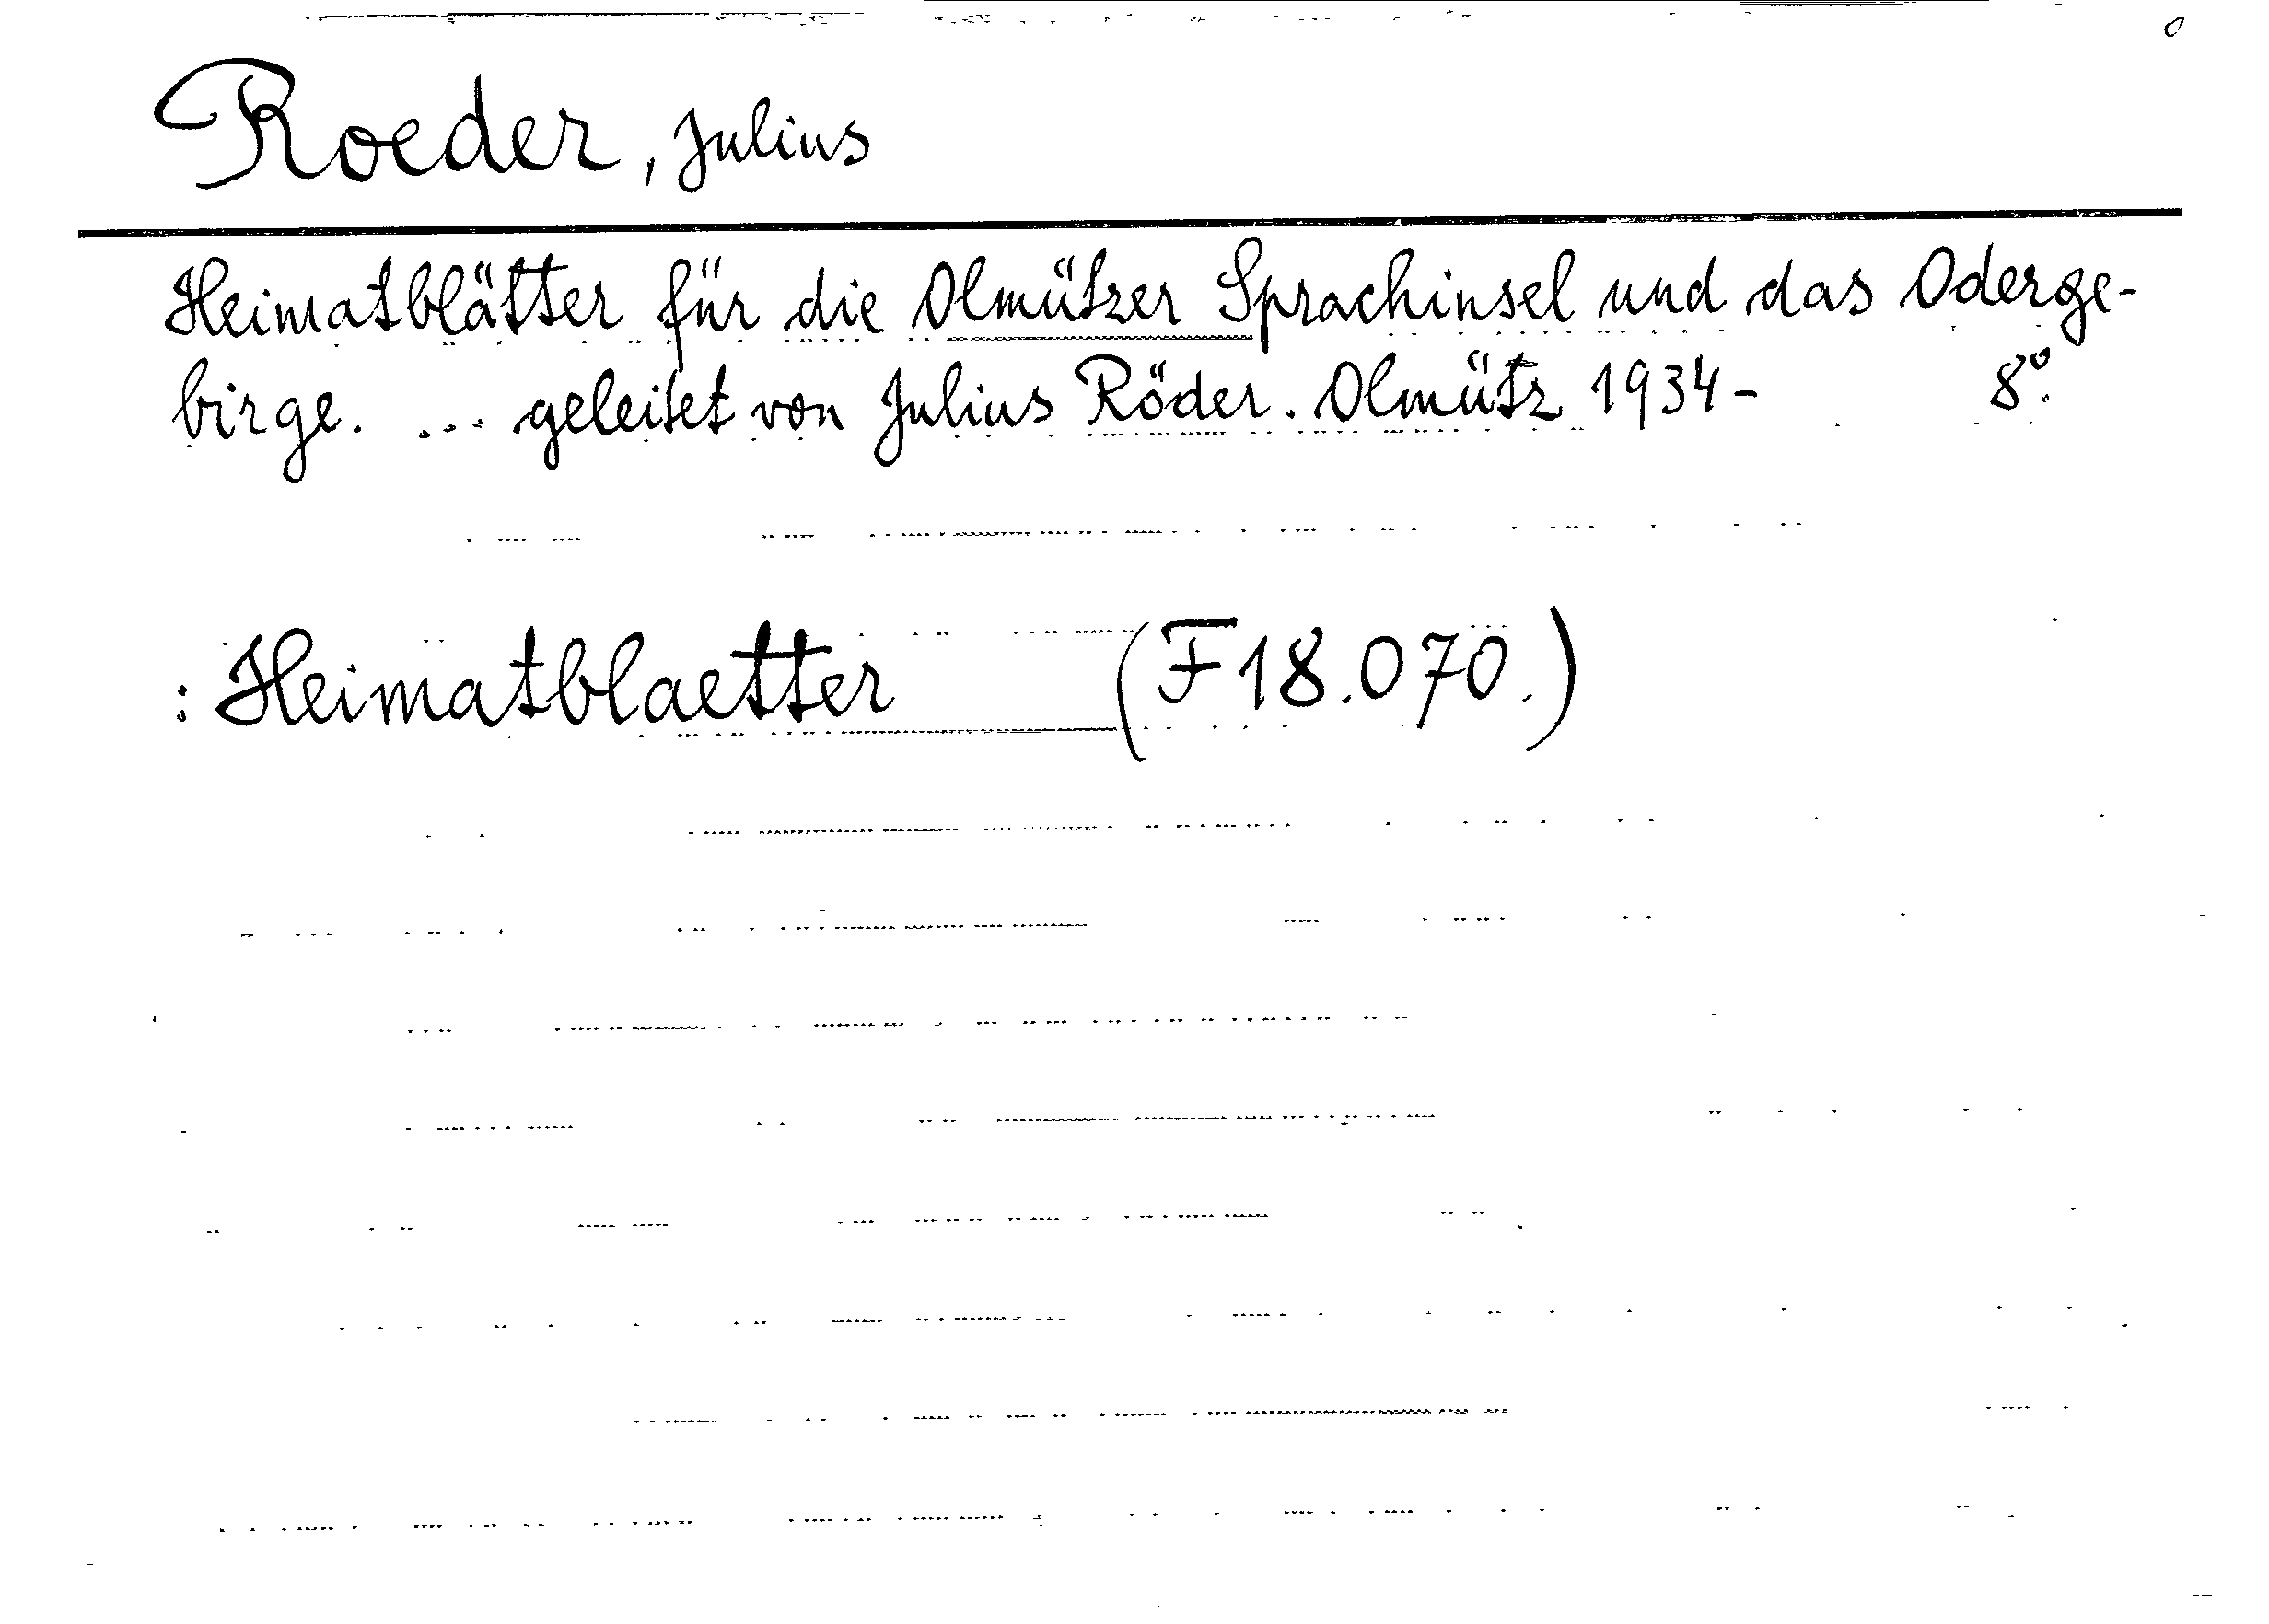 Roeder, Julius
Heimatblätter für die Olmützer Sprachinsel und das Oderge-
birge. ... geleitet von Julius Röder. Olmütz 1934- 8º.
: Heimatblaetter (F 18.070.)